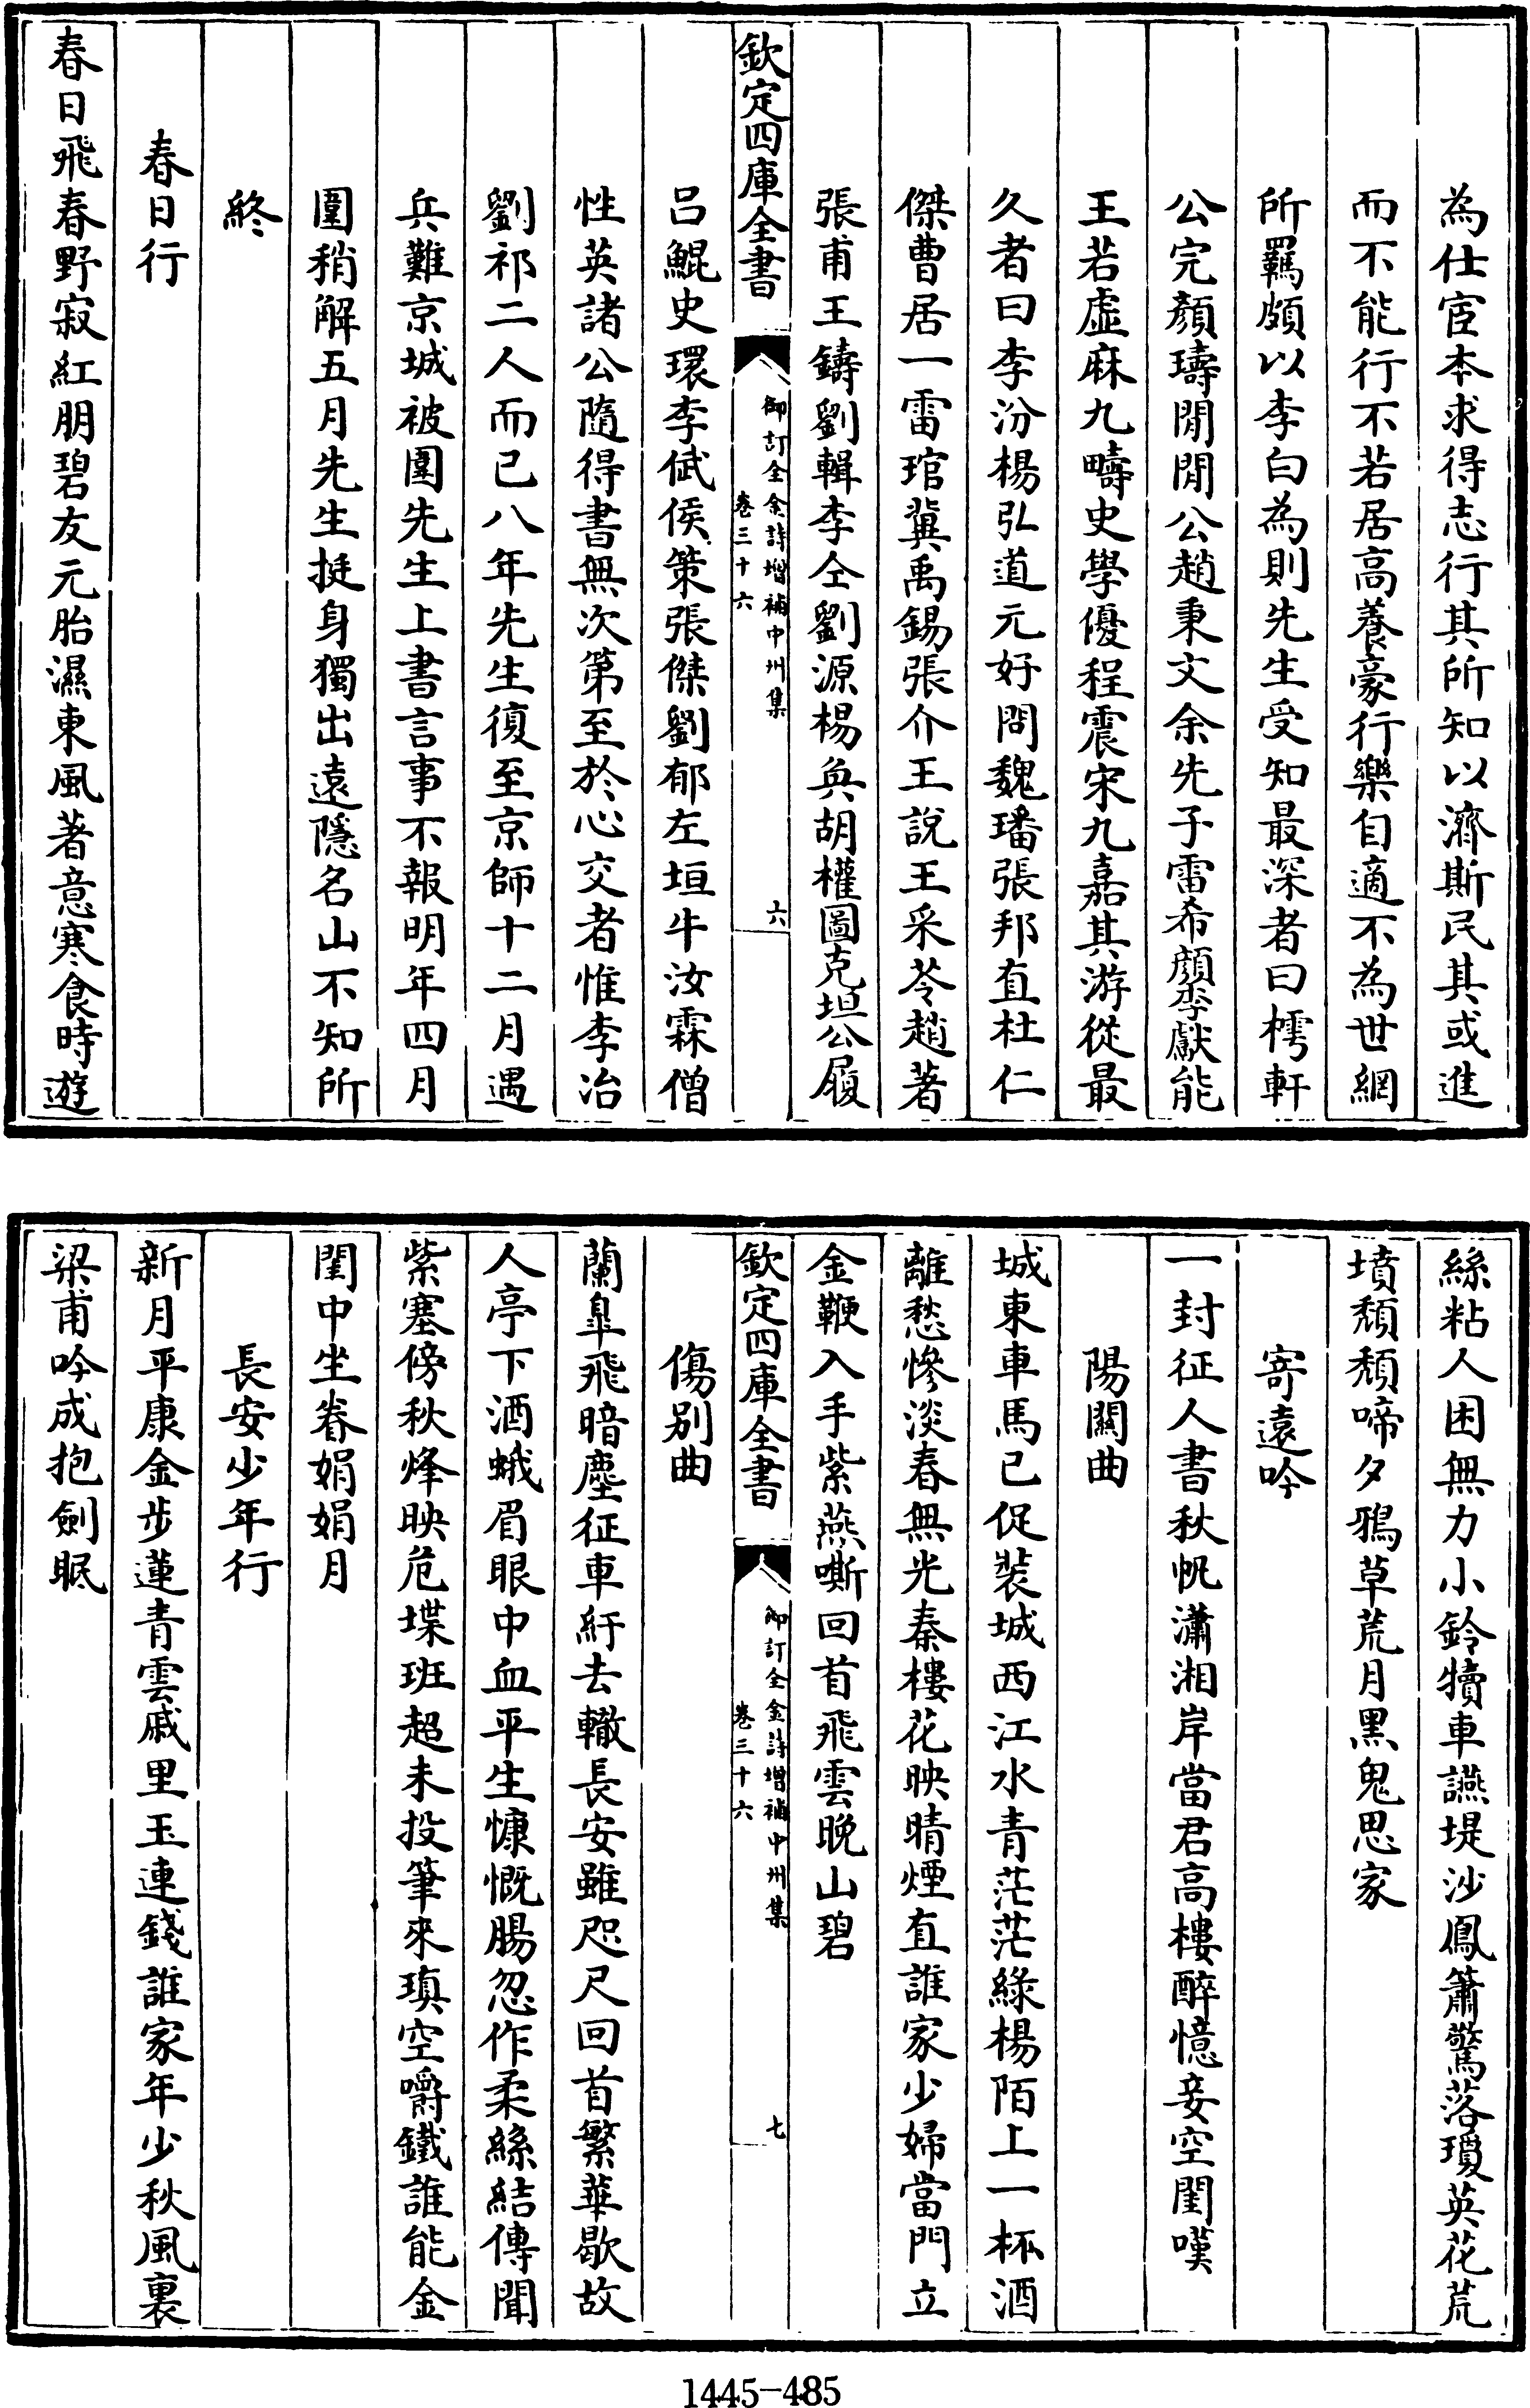 為仕宦本求得志行其所知以濟斯民其或進
而不能行不若居高養豪行樂自適不為世網
所羈頗以李白為則先生受知最深者曰樗軒
公完顏璹閒閒公趙秉文余先子雷希顏李獻能
王若虛麻九疇史學優程震宋九嘉其游從最
久者曰李汾楊弘道元好問魏璠張邦直杜仁
傑曹居一雷琯冀禹錫張介王說王采苓趙著
張甫王鑄劉輯李仝劉源楊奐胡權圖克坦公履
欽定四庫全書
御訂全金詩增補中州集
卷三十六
六
呂鯤史環李倵侯策張傑劉郁左垣牛汝霖僧
性英諸公隨得書無次第至於心交者惟李冶
劉祁二人而已八年先生復至京師十二月遇
兵難京城被圍先生上書言事不報明年四月
圍稍解五月先生挺身獨出遠隱名山不知所
終
春日行
春日飛春野寂紅朋碧友元胎濕東風著意寒食時遊
絲粘人困無力小鈴犢車讌堤沙鳳簫驚落瓊英花荒
墳頹頹啼夕鴉草荒月黑鬼思家
寄遠吟
一封征人書秋帆瀟湘岸當君高樓醉憶妾空閨嘆
陽關曲
城東車馬已促裝城西江水青茫茫綠楊陌上一杯酒
離愁慘淡春無光秦樓花映晴煙直誰家少婦當門立
金鞭入手紫燕嘶回首飛雲晚山碧
欽定四庫全書
御訂全金詩增補中州集
卷三十六
七
傷別曲
蘭臯飛暗塵征車紆去轍長安雖咫尺回首繁華歇故
人亭下酒蛾眉眼中血平生慷慨腸忽作柔絲結傳聞
紫塞傍秋烽映危堞班超未投筆來瑱空嚼鐵誰能金
閨中坐眷娟娟月
長安少年行
新月平康金步蓮青雲戚里玉連錢誰家年少秋風裏
梁甫吟成抱劍眠
1445-485